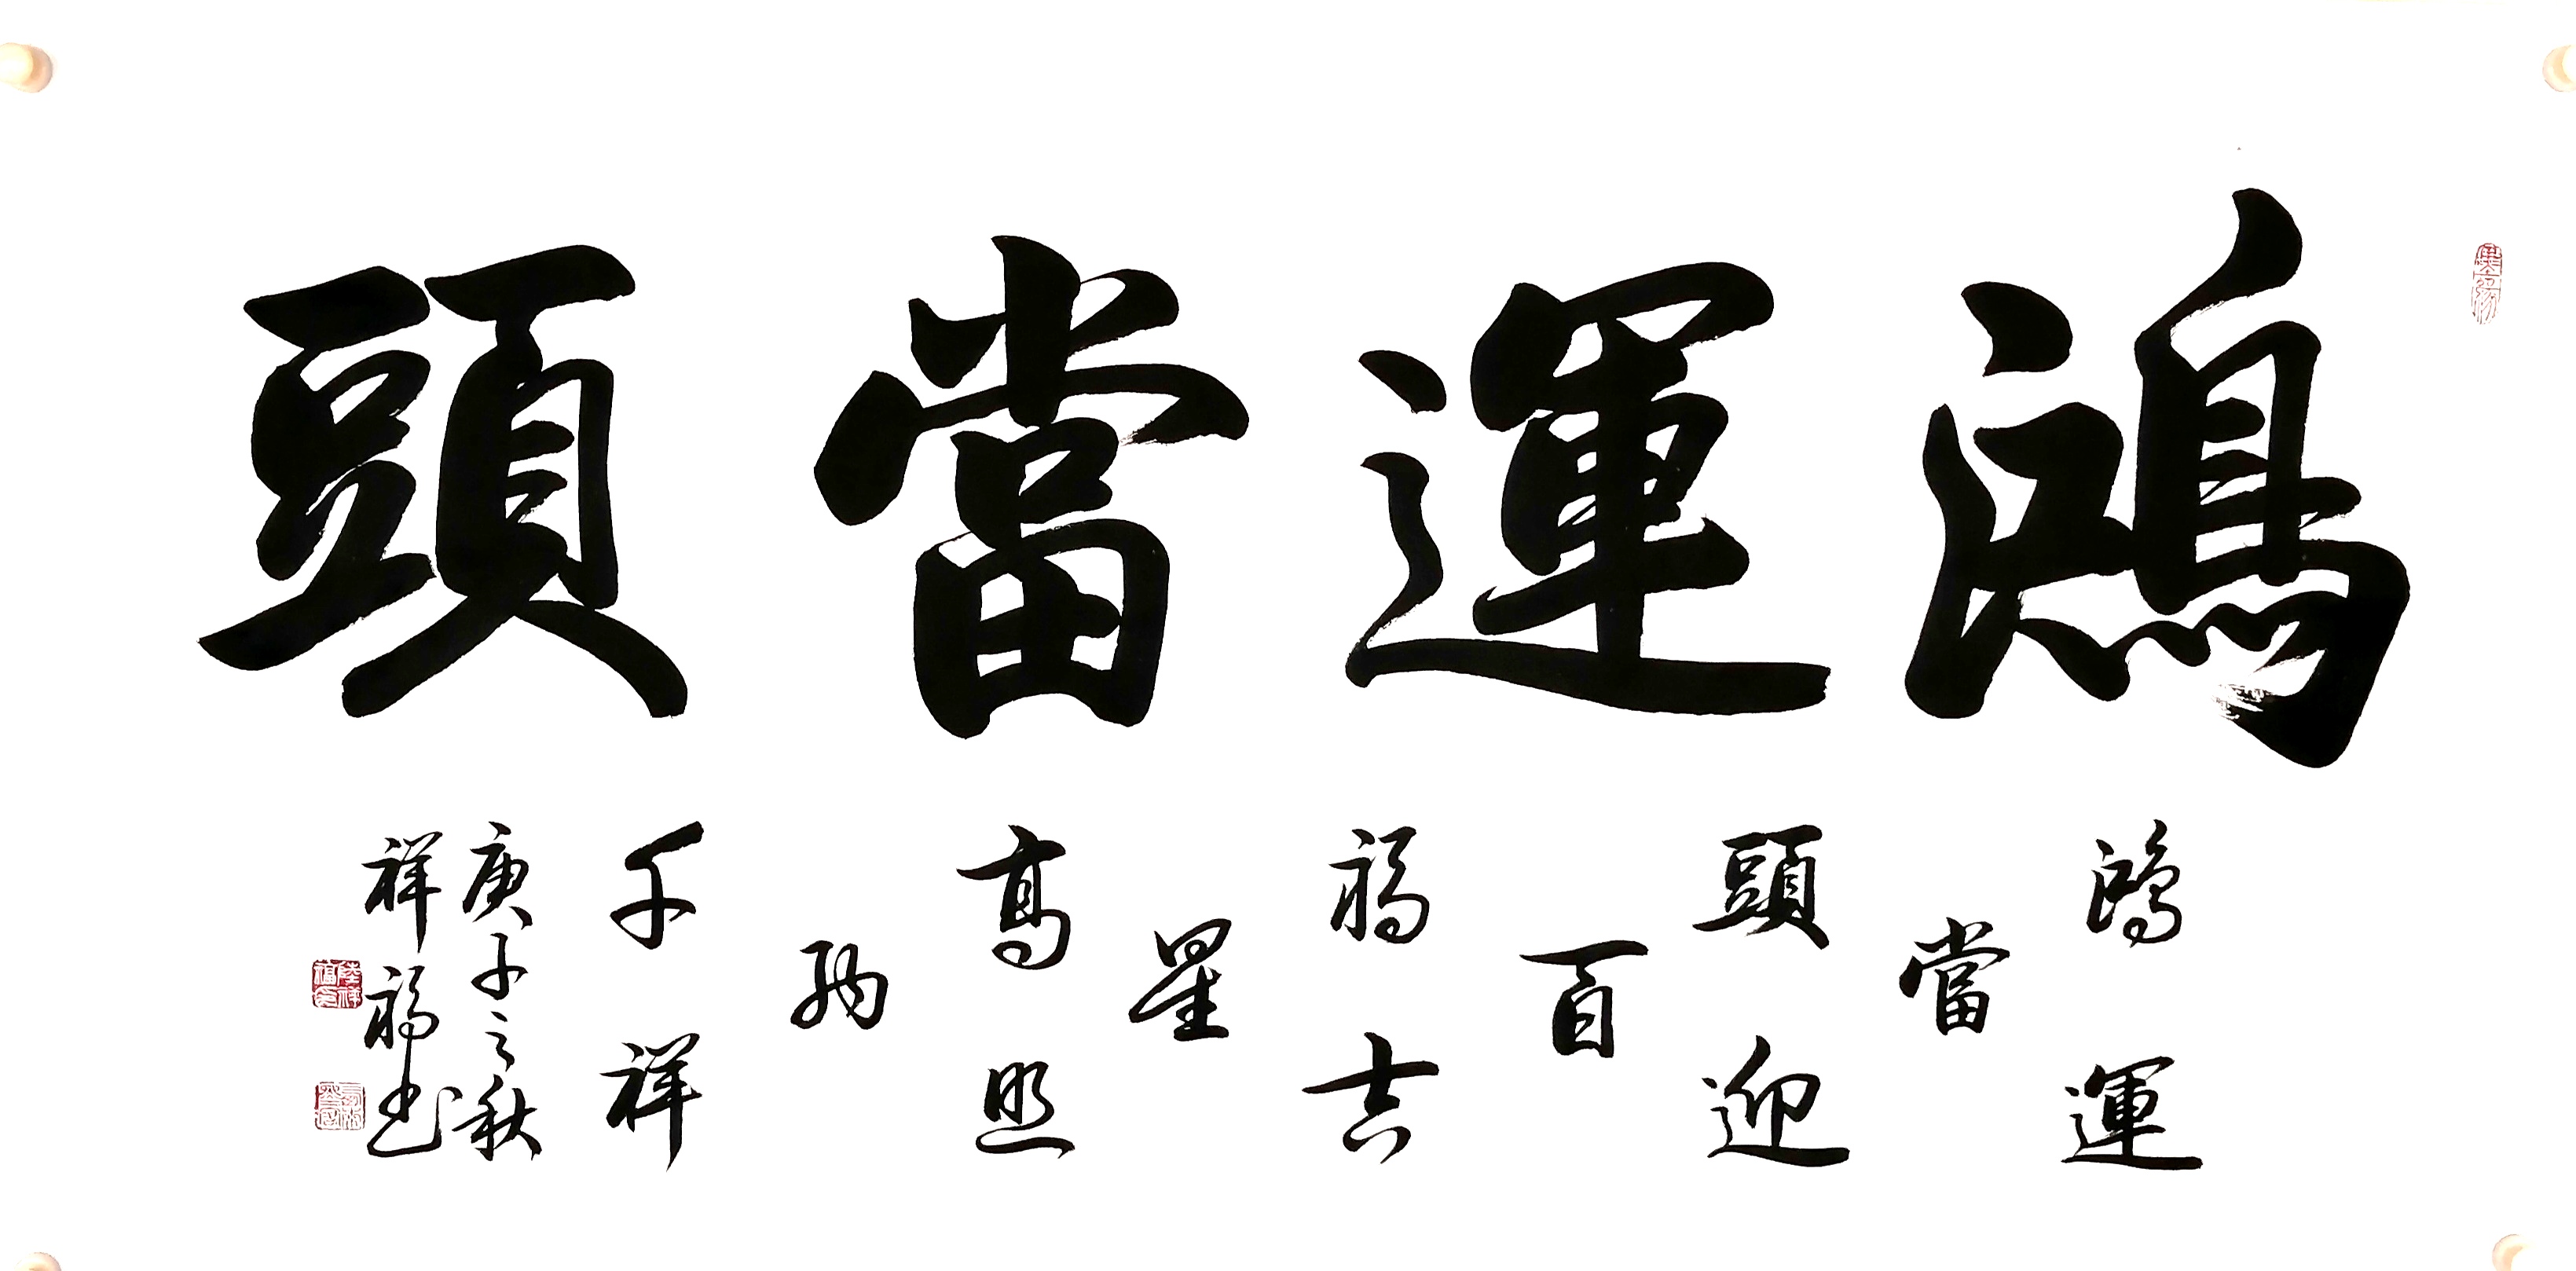 鴻運當頭
鴻運當頭迎百福吉星高照納千祥
庚子之秋
祥福书
陸祥福印